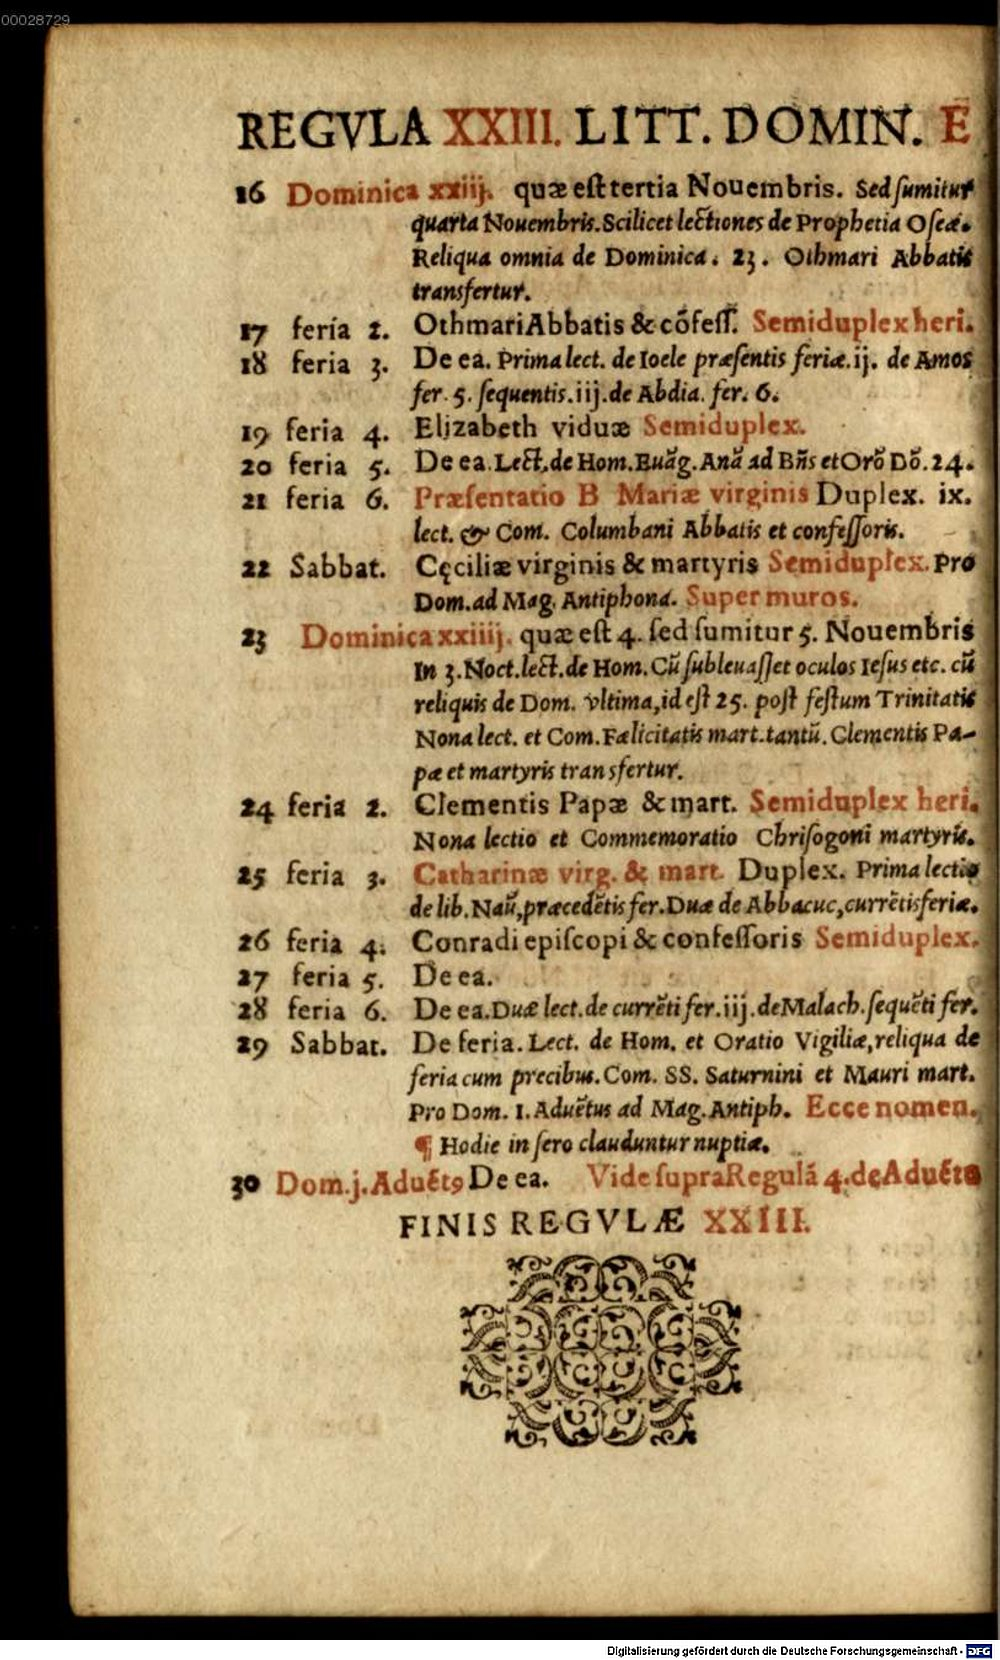 00028729
REGVLA XXIII. LITT. DOMIN. E
16 Dominica xxiij. quæ est tertia Nouembris. Sed sumitur
quarta Nouembris. Scilicet lectiones de Prophetia Oseæ.
Reliqua omnia de Dominica. 23. Othmari Abbatis
transfertur.
17 feria 2. Othmari Abbatis & cõfess. Semiduplex heri.
18 feria 3. De ea. Prima lect. de Ioele præsentis feriæ. ij. de Amos
fer. 5. sequentis. iij. de Abdia. fer. 6.
19 feria 4. Elizabeth viduæ Semiduplex.
20 feria 5. De ea. Lect. de Hom. Euãg. Anã ad Bñs et Orõ Dõ. 24.
21 feria 6. Præsentatio B Mariæ virginis Duplex. ix.
lect. & Com. Columbani Abbatis et confessoris.
22 Sabbat. Cęciliæ virginis & martyris Semiduplex. Pro
Dom. ad Mag. Antiphona. Super muros.
23 Dominica xxiiij. quæ est 4. sed sumitur 5. Nouembris
In 3. Noct. lect. de Hom. Cũ subleuasset oculos Iesus etc. cũ
reliquis de Dom. vltima, id est 25. post festum Trinitatis
Nona lect. et Com. Fælicitatis mart. tantũ. Clementis Pa-
pæ et martyris transfertur.
24 feria 2. Clementis Papæ & mart. Semiduplex heri.
Nona lectio et Commemoratio Chrisogoni martyris.
25 feria 3. Catharinæ virg. & mart. Duplex. Prima lectio
de lib. Naũ, præcedẽtis fer. Duæ de Abbacuc, currẽtis feriæ.
26 feria 4. Conradi episcopi & confessoris Semiduplex.
27 feria 5. De ea.
28 feria 6. De ea. Duæ lect. de currẽti fer. iij. de Malach. sequẽti fer.
29 Sabbat. De feria. Lect. de Hom. et Oratio Vigiliæ, reliqua de
feria cum precibus. Com. SS. Saturnini et Mauri mart.
Pro Dom. 1. Aduẽtus ad Mag. Antiph. Ecce nomen.
¶ Hodie in sero clauduntur nuptiæ.
30 Dom. j. Aduẽtꝯ De ea. Vide supra Regulã 4. de Aduẽtu
FINIS REGVLÆ XXIII.
Digitalisierung gefördert durch die Deutsche Forschungsgemeinschaft - DFG